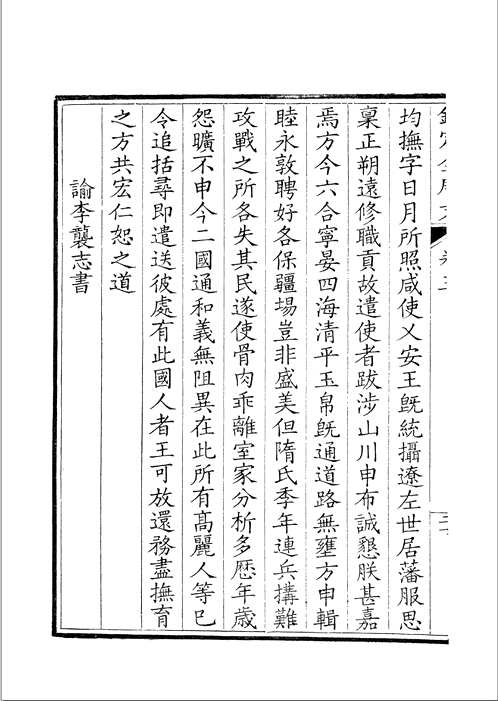 均撫字日月所照咸使乂安王既統攝遼左世居藩服思
稟正朔遠修職貢故遣使者跋涉山川申布誠懇朕甚嘉
焉方今六合寧晏四海清平玉帛既通道路無壅方申輯
睦永敦聘好各保疆埸豈非盛美但隋氏季年連兵搆難
攻戰之所各失其民遂使骨肉乖離室家分析多厯年歲
怨曠不申今二國通和義無阻異在此所有髙麗人等已
令追括尋即遣送彼處有此國人者王可放還務盡撫育
之方共宏仁恕之道
諭李襲志書